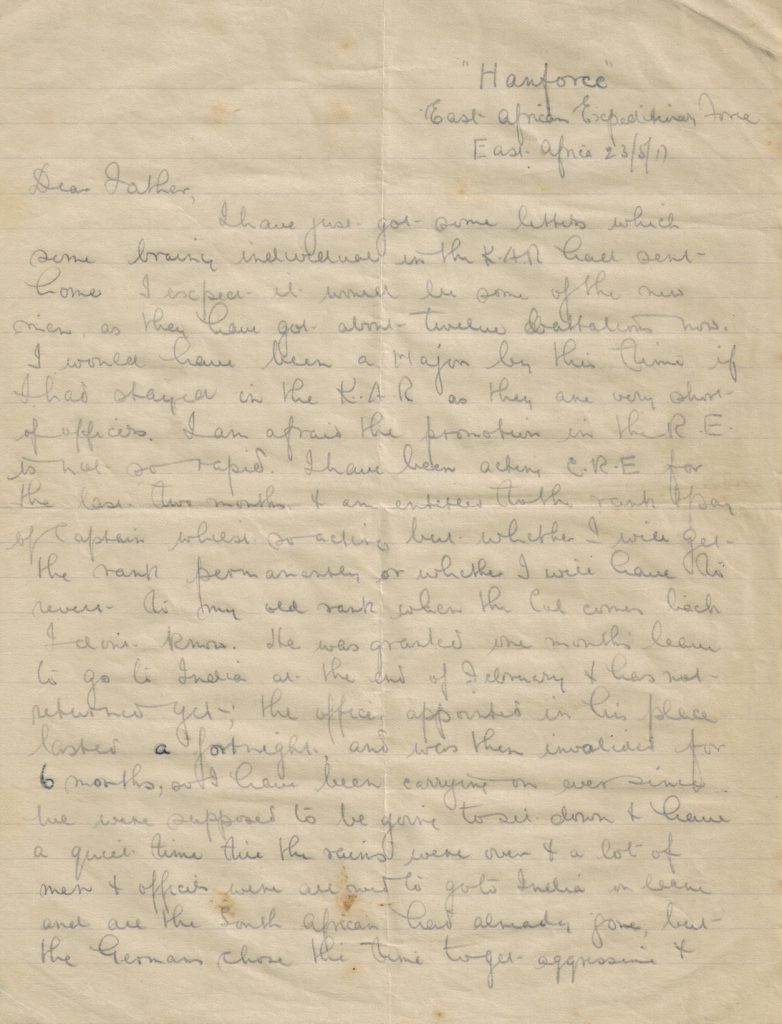 "Hanforce"
East African Expeditionary Force
East Africa 23/5/17
Dear Father,
I have just got some letters which
some brainy individual in the K.A.R had sent
home I expect it would be some of the new
men, as they have got about twelve battalions now.
I would have been a Major by this time if
I had stayed in the K.A.R as they are very short
of officers. I am afraid the promotion in the R.E.
is not so rapid. I have been acting C.R.E for
the last two months & am entitled to the rank & pay
of Captain whilst so acting but whether I will get
the rank permanently or whether I will have to
revert to my old rank when the Col comes back
I don't know. He was granted one months leave
to go to India at the end of February & has not
returned yet; the officer appointed in his place
lasted a fortnight, and was then invalided for
6 months, so I have been carrying on ever since.
We were supposed to be going to sit down & have
a quiet time till the rains were over & a lot of
men & officers were allowed to go to India on leave
and all the South African had already gone, but
the Germans chose this time to get aggressive &